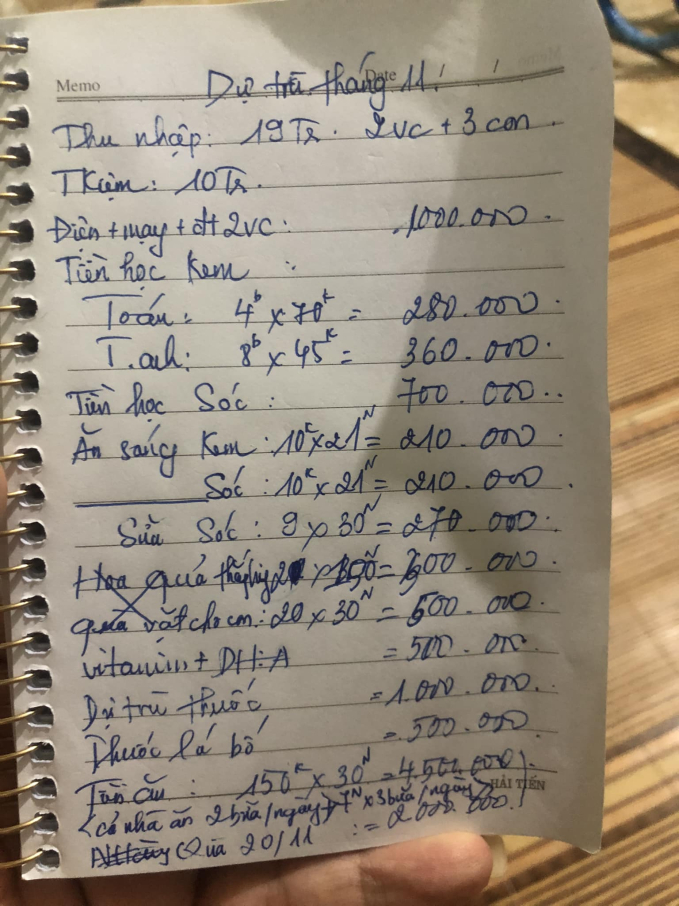 Memo Date
Dự trù tháng 11.
Thu nhập: 19Tr. 2vc + 3 con.
TKiệm: 10Tr.
Điện + mạy + đt 2vc: 1000.000.
Tiền học Kem :
Toán: 4b x 70k = 280.000.
T.anh: 8b x 45k = 360.000.
Tiền học Sóc : 700.000..
Ăn sáng Kem : 10k x 21N = 210.000
Sóc : 10k x 21N = 210.000.
Sữa Sóc : 9 x 30N = 270.000.
Hoa quả 600.000.
quà vặt cho con: 20 x 30N = 600.000.
vitamin + DHA = 500.000.
Dự trù thuốc = 1.000.000.
Thuốc lá bố = 500.000.
Tiền ăn : 150k x 30N = 4.500.000
HẢI TIẾN
(cả nhà ăn 2 bữa/ngày + 7N x 3 bữa/ngày)
Quà 20/11 := 2.000.000.